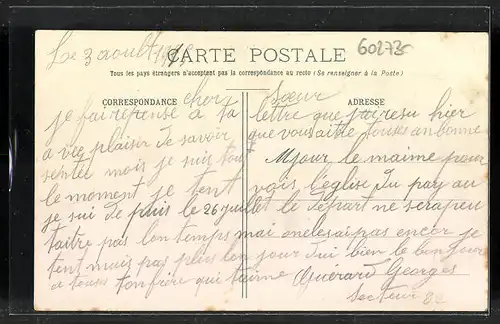 Le 3 aoult 1915
60273
CARTE POSTALE
Tous les pays étrangers n'acceptent pas la correspondance au recto (Se renseigner à la Poste)
CORRESPONDANCE
ADRESSE
cher Sœur
je fai réponse a ta lettre que j'ai resu hier
a vec plaisir de savoir que vous aite tous an bonne
sentée mois je suis tou jour le maime pour
le moment je tent vois l'église du pay au
je sui de puis le 26 juillet le départ ne serapeu
taitre pas lon temps mai on le sai pas encor je
tent mais pas plus lon jour dui bien le bonjour
a tous ton frère qui t'aime Guérard Georges
Secteur 82